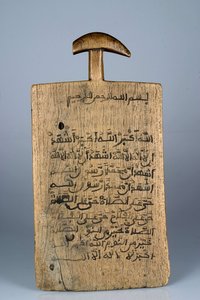 بسم الله الرحمن الرحيم
الله أكبر الله أكبر أشهد
أن لا إله إلا الله أشهد أن لا إله إلا الله
أشهد أن محمد رسول الله
أشهد أن محمد رسول الله
حي على الصلاة حي على
حي على فلاح حي على
الصلاة خير من النوم
خير من النوم الله أكبر الله
أكبر لا إله إلا الله